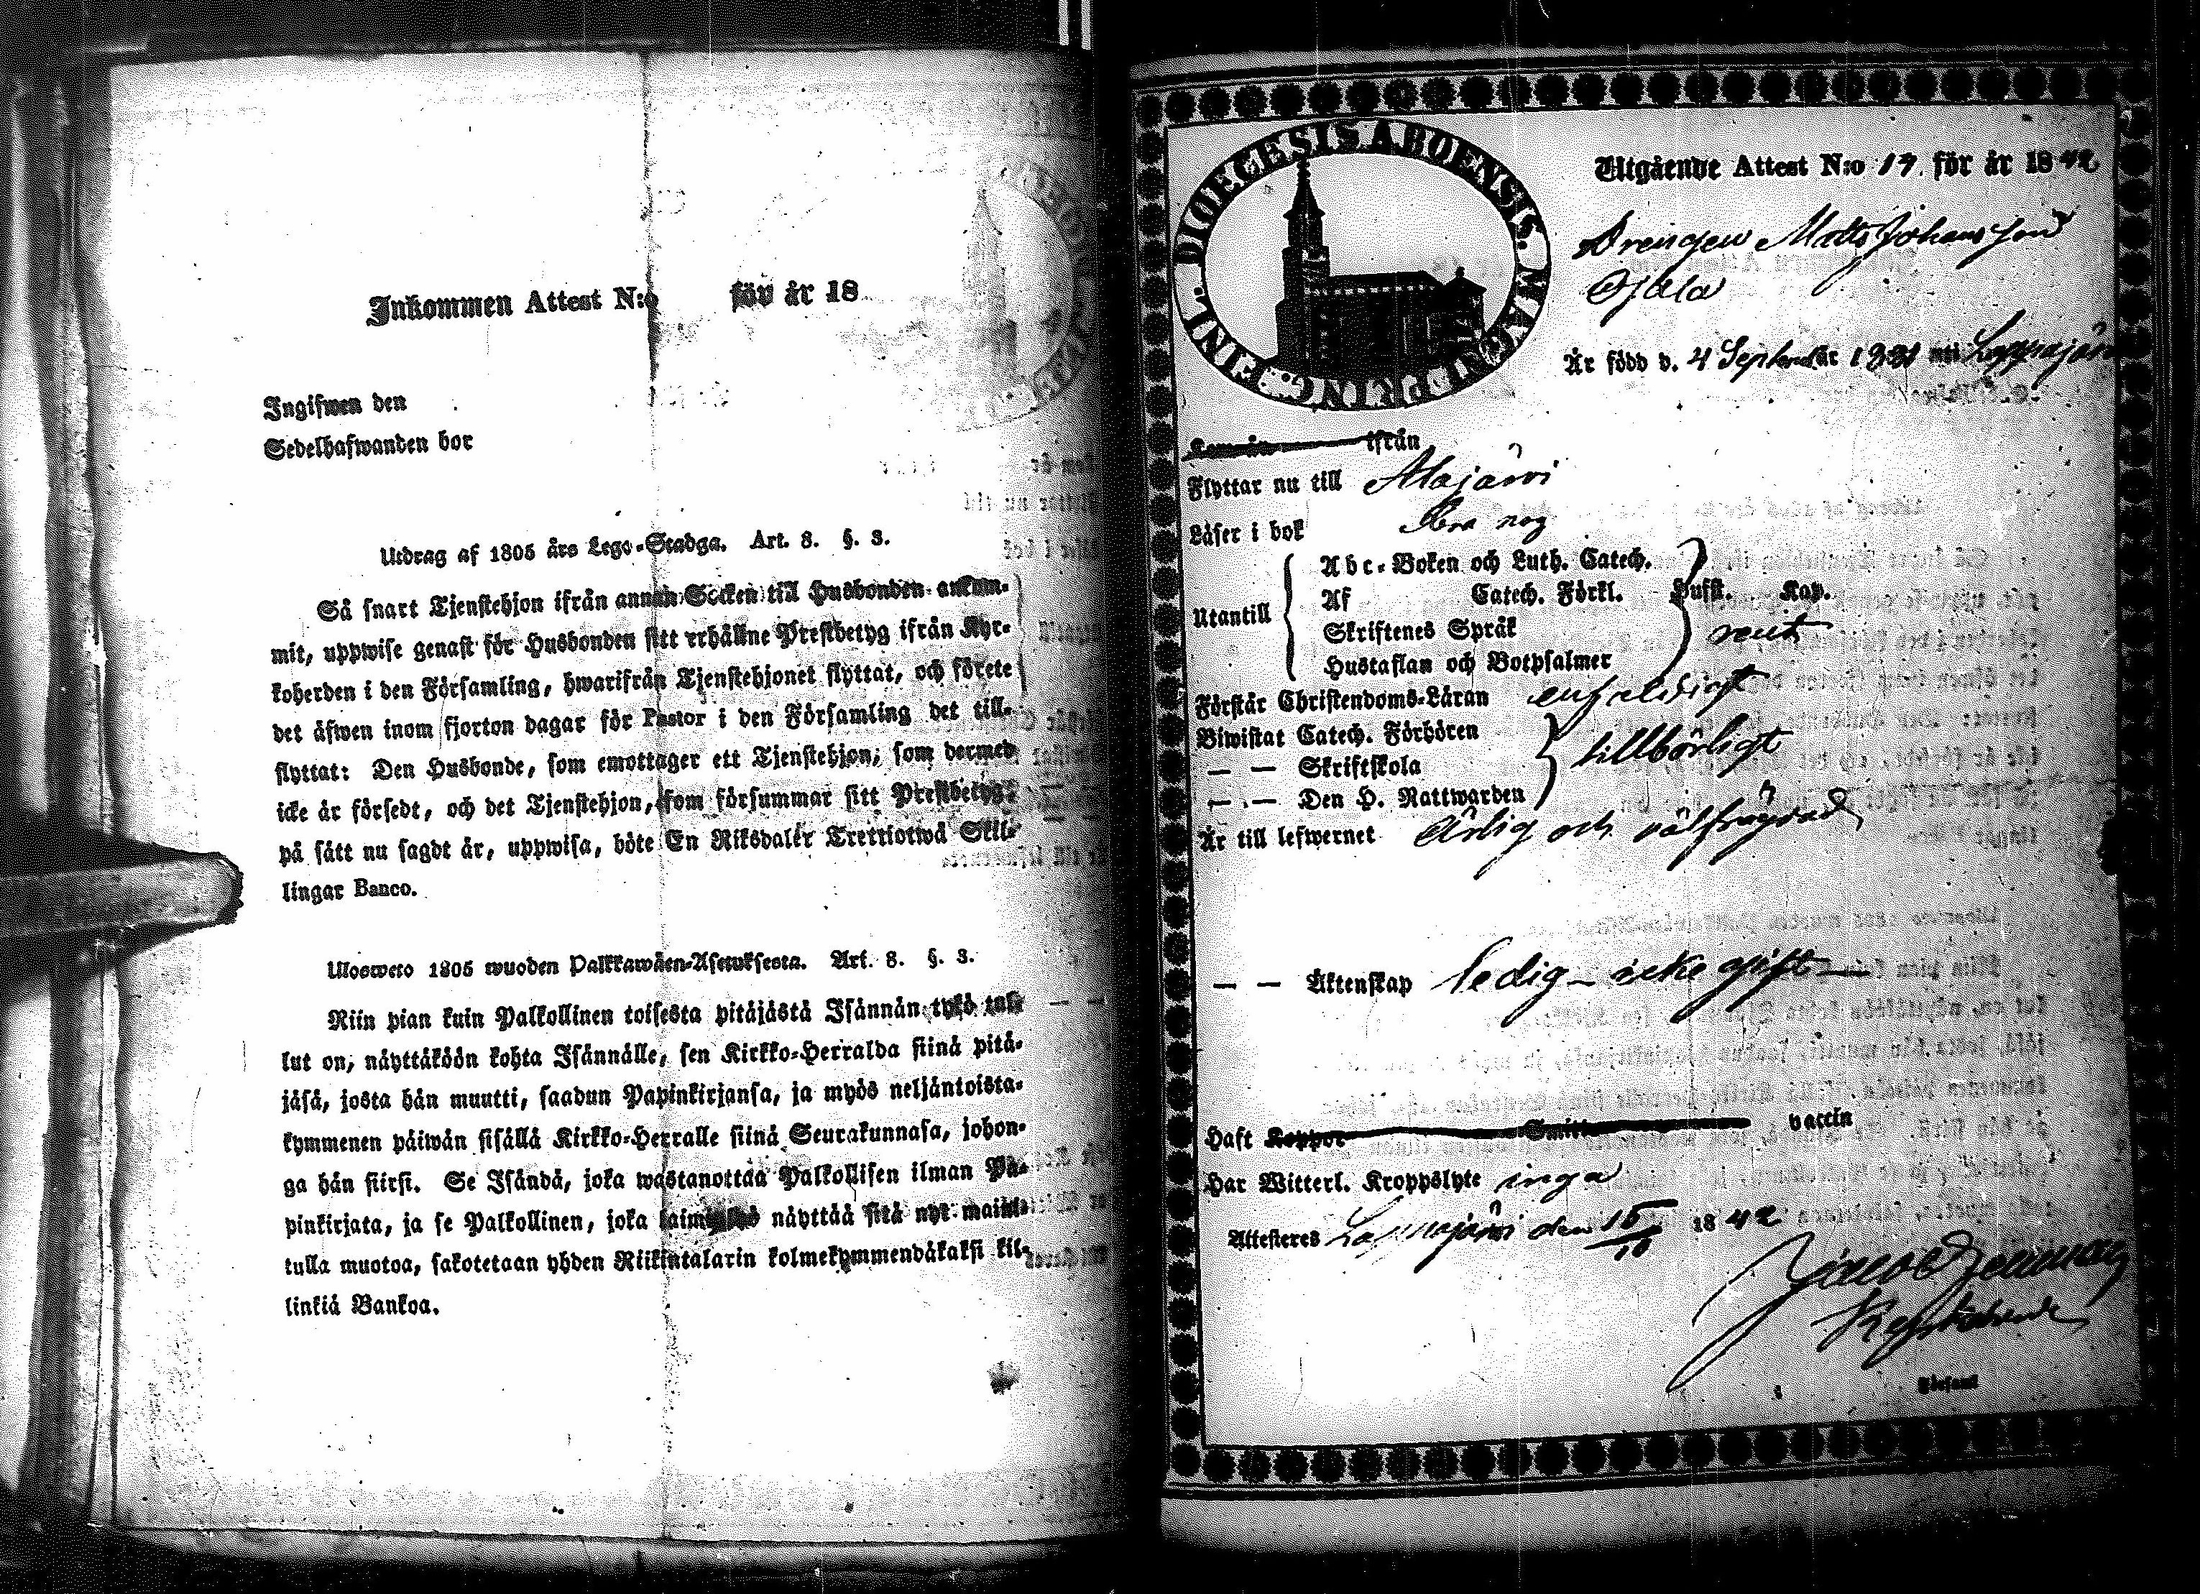 Inkommen Attest N:o för år 18
Ingifwen den
Sedelhafwanden bor
Utdrag af 1805 års Lego-Stadga. Art. 8. §. 3.
Så snart Tjenstehjon ifrån annan Socken till Husbonden ankom-
mit, uppwise genast för Husbonden sitt erhållne Prestbetyg ifrån Kyr-
koherden i den Församling, hwarifrån Tjenstehjonet flyttat, och förete
det äfwen inom fjorton dagar för Pastor i den Församling det till-
flyttat: Den Husbonde, som emottager ett Tjenstehjon, som dermed
icke är försedt, och det Tjenstehjon, som försummar sitt Prestbetyg,
på sätt nu sagdt är, uppwisa, böte En Riksdaler Trettiotwå Skil-
lingar Banco.
Ulosweto 1805 wuoden Palkkawäen-Asetuksesta. Art. 8. §. 3.
Niin pian kuin Palkollinen toisesta pitäjästä Isännän tykö tul-
lut on, näyttäköön kohta Isännälle, sen Kirkko-Herralda siinä pitä-
jäsä, josta hän muutti, saadun Papinkirjansa, ja myös neljäntoista-
kymmenen päiwän sisällä Kirkko-Herralle siinä Seurakunnasa, johon-
ga hän siirsi. Se Isändä, joka wastanottaa Palkollisen ilman Pa-
pinkirjata, ja se Palkollinen, joka laiminlyö näyttää sitä nyt maini-
tulla muotoa, sakotetaan yhden Riikintalarin kolmekymmendäkaksi kil-
linkiä Bankoa.
DIOECESIS ABOENSIS. MAGNI PRINC: FINL.
Utgående Attest N:o 17. för år 1842
Drengen Matts Johansson
Ojala
Är född d. 4 September år 1821 uti Lappajärvi
ifrån
Flyttar nu till Alajärvi
Läser i bok Bra nog
Utantill
Abc-Boken och Luth. Catech.
Af Catech. Förkl. Hufst. Kap.
Skriftenes Språk rent
Hustaflan och Botpsalmer
Förstår Christendoms-Läran enfaldigt
Biwistat Catech. Förhören
— — Skriftskola tillbörligt
— — Den H. Nattwarden
Är till lefwernet Ärlig och välfrägdad
— — Äktenskap ledig – icke gift —
Haft Koppor Smitt vaccin
Har Witterl. Kroppslyte inga
Attesteres Lappajärvi den 15/10 1842
Jacob